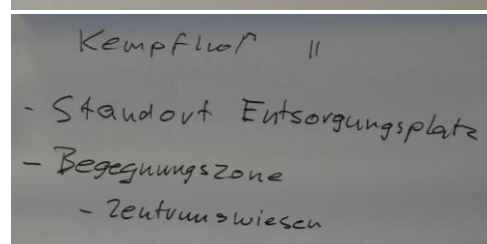 Kempfhof "
- Standort Entsorgungsplatz
- Begegnungszone
- Zentrumswiesen